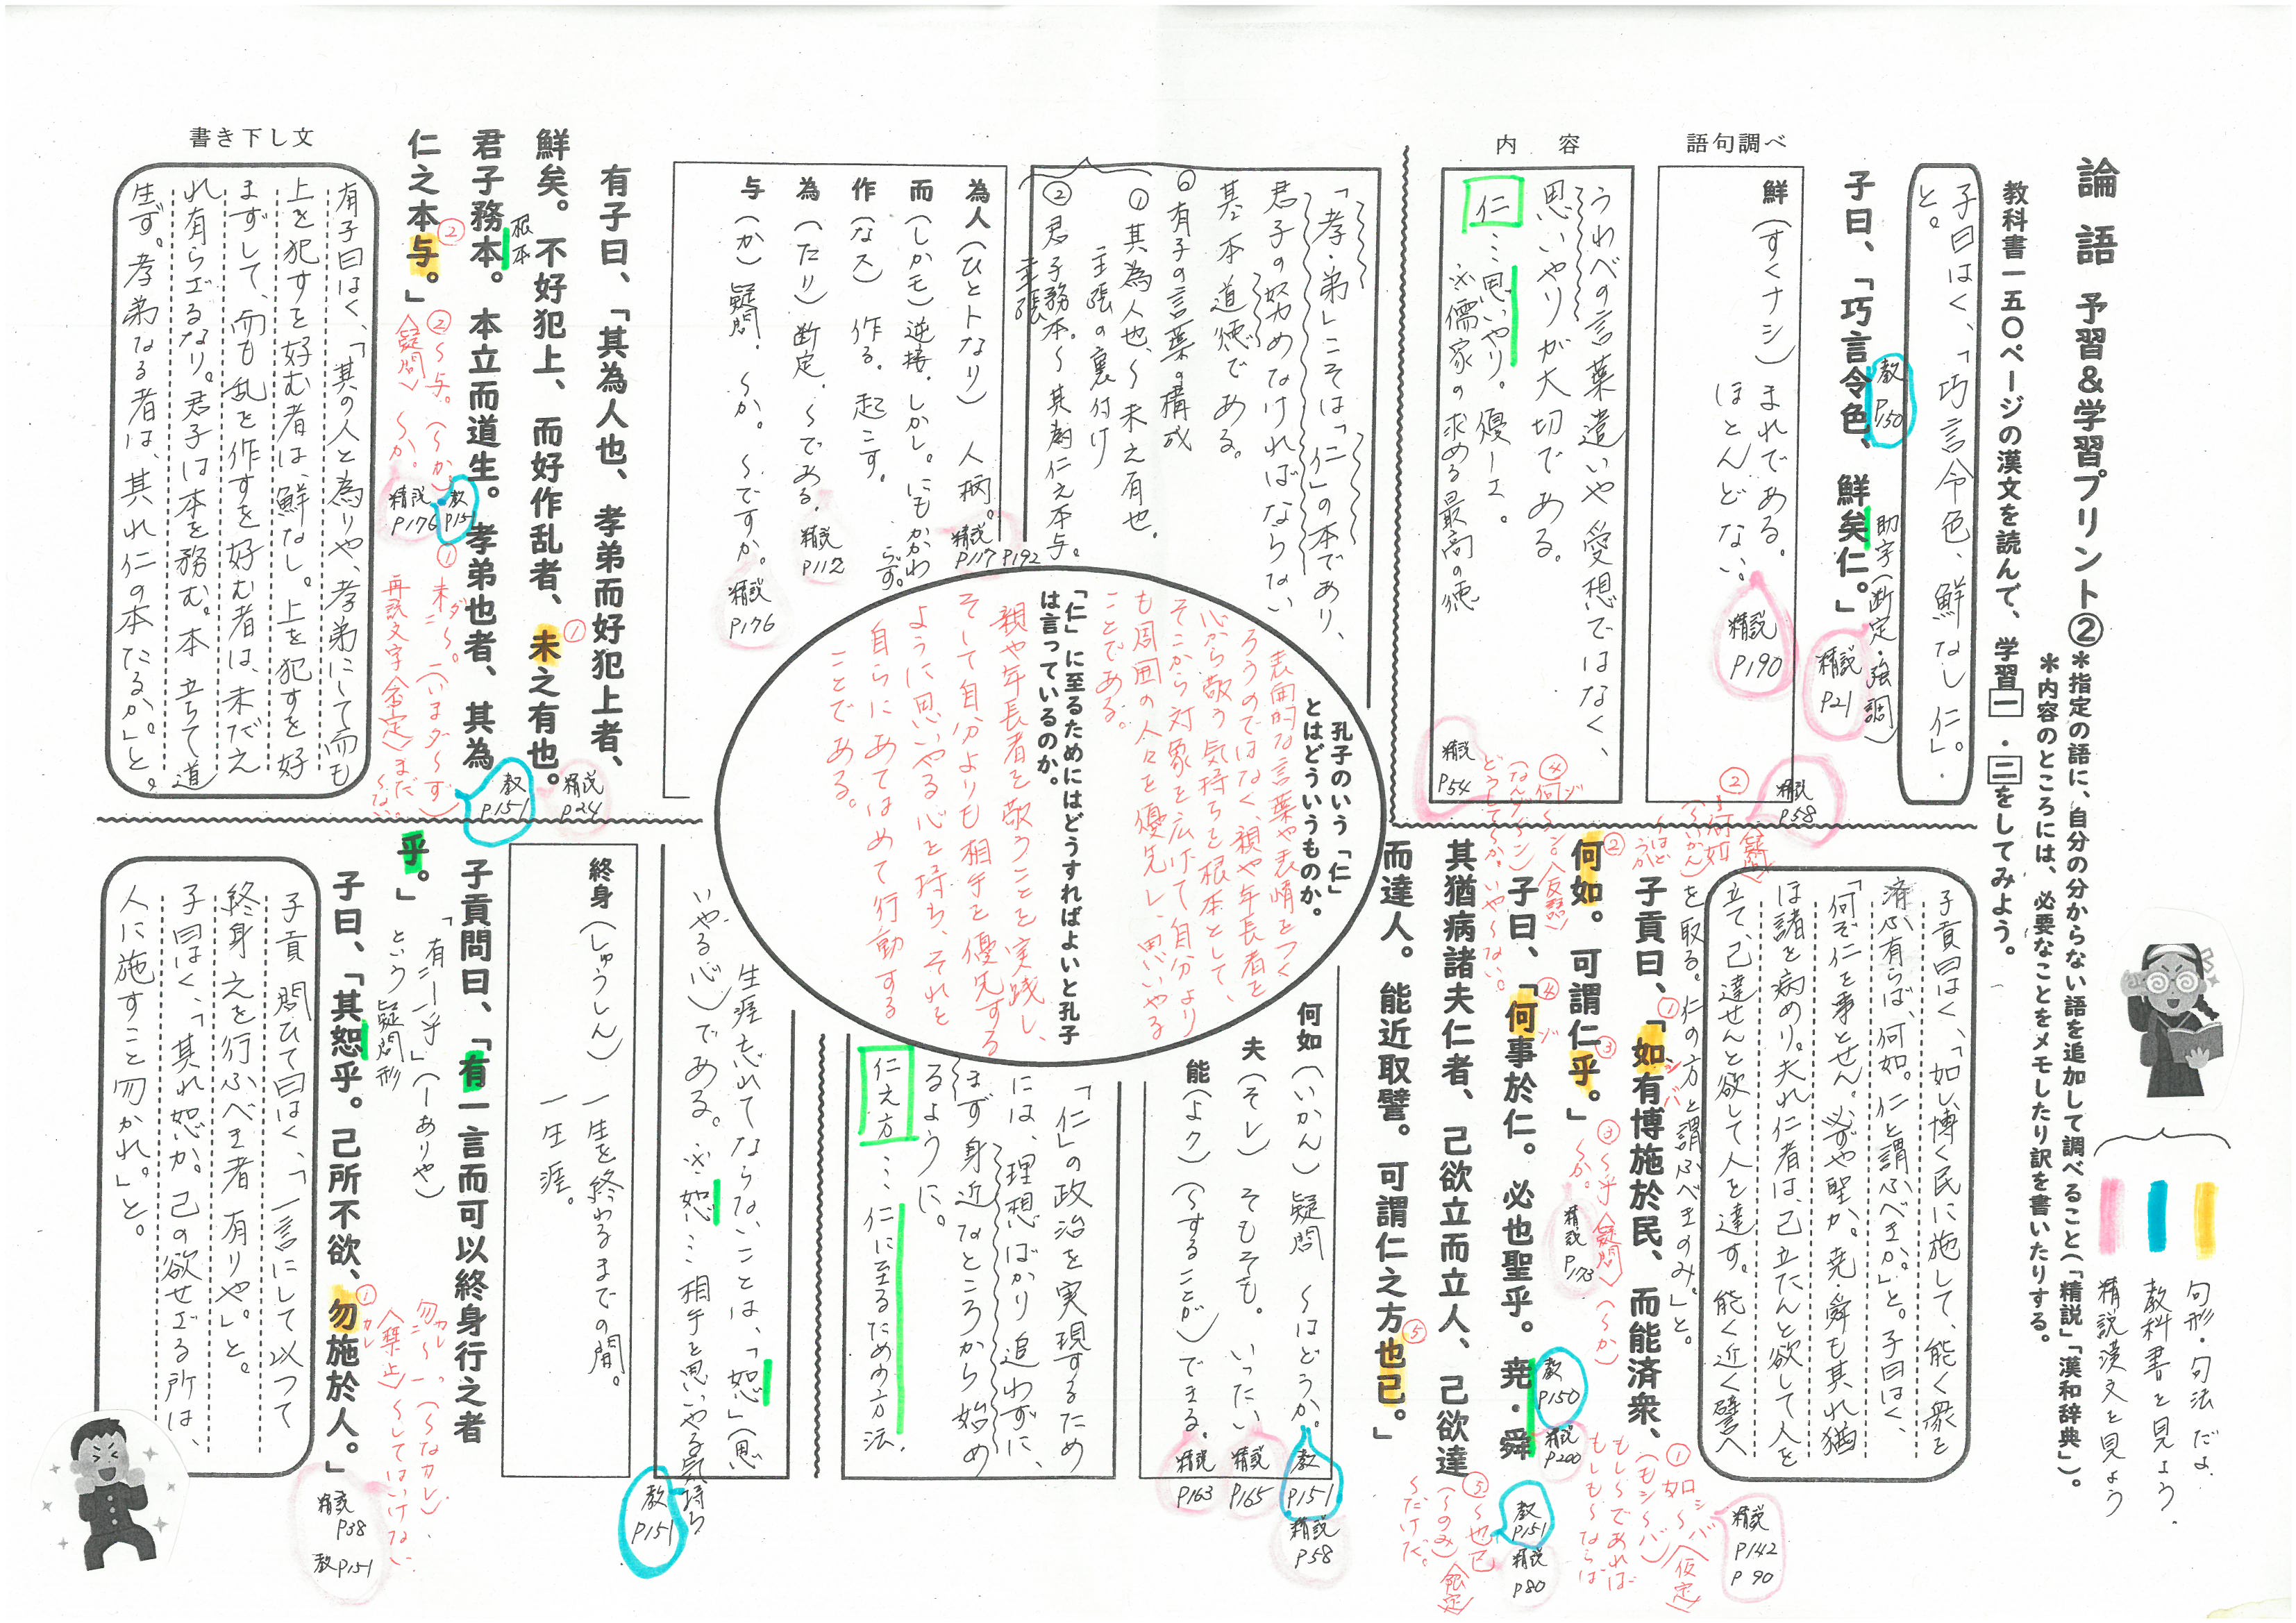 論語 予習&学習プリント②
*指定の語に、自分の分からない語を追加して調べること(「精説」「漢和辞典」)。
*内容のところには、必要なことをメモしたり訳を書いたりする。
教科書一五〇ページの漢文を読んで、学習一・二をしてみよう。
句形・句法だよ.
教科書を見よう.
精説漢文を見よう
子曰はく、「巧言令色、鮮なし仁」.
と。
子曰、「巧言令色、鮮矣仁。」
教
P150
助字(断定・強調)
精説
P21
語句調べ
鮮(すくナシ)まれである。
ほとんどない.
精説
P190
内 容
うわべの言葉遣いや愛想ではなく、
思いやりが大切である。
仁…思いやり。優しさ。
※儒家の求める最高の徳
子貢曰はく、「如し博く民に施して、能く衆を
済ふ有らば、何如。仁と謂ふべきか。」と。子曰はく、
「何ぞ仁を事とせん。必ずや聖か。堯・舜も其れ猶
ほ諸を病めり。夫れ仁者は、己立たんと欲して人を
立て、己達せんと欲して人を達す。能く近く譬へ
を取る。仁の方と謂ふべきのみ。」と。
子貢曰、「如有博施於民、而能済衆、
何如。可謂仁乎。」
子曰、「何事於仁。必也聖乎。堯・舜
其猶病諸夫仁者、己欲立而立人、己欲達
而達人。能近取譬。可謂仁之方也已。」
①如シ~バ〈仮定〉
(もシ~バ)
もし~であれば
もしも~ならば
精説
P142
P90
②何如〈疑問〉
(~いかん)
~はどうか
精説
P58
③~乎〈疑問〉(~か)
~か。
精説
P173
④何ゾ~ン。〈反語〉
(なんゾ~ン)
どうして~か。いや~ない。
精説
P54
⑤~也已
(~のみ)〈限定〉
~だけだ。
教
P150
精説
P200
教
P151
精説
P80
何如(いかん)疑問 ~はどうか。
教
P151
精説
P58
夫(そレ) そもそも。いったい
精説
P165
能(よク)(~することが)できる.
精説
P163
「仁」の政治を実現するため
には、理想ばかり追わずに、
まず身近なところから始め
るように。
仁之方…仁に至るための方法.
「孝・弟」こそは「仁」の本であり、
君子の努めなければならない
基本道徳である。
◎有子の言葉の構成
①其為人也、~未之有也.
主張の裏付け
②君子務本。~其為仁之本与。
主張
為人(ひとトなり) 人柄。
精説
P117 P192
而(しかモ)逆接.しかし。にもかかわらず。
作(なス) 作る。起こす。
為(たり)断定.~である.
精説
P112
与(か)疑問.~か。~ですか。
精説
P176
孔子のいう「仁」
とはどういうものか。
表面的な言葉や表情をつく
ろうのではなく、親や年長者を
心から敬う気持ちを根本として、
そこから対象を広げて自分より
も周囲の人々を優先し、思いやる
ことである。
「仁」に至るためにはどうすればよいと孔子
は言っているのか。
親や年長者を敬うことを実践し、
そして自分よりも相手を優先する
ように思いやる心を持ち、それを
自らにあてはめて行動する
ことである。
有子曰、「其為人也、孝弟而好犯上者、
鮮矣。不好犯上、而好作乱者、未之有也。
君子務本。本立而道生。孝弟也者、其為
仁之本与。」
根本
①未ダ~。(いまダ~ず)
再読文字〈否定〉まだ~ない.
教
P151
精説
P24
②~与。(~か)
〈疑問〉 ~か。
教
P151
精説
P176
書き下し文
有子曰はく、「其の人と為りや、孝弟にして而も
上を犯すを好む者は、鮮なし。上を犯すを好
まずして、而も乱を作すを好む者は、未だ之
れ有らざるなり。君子は本を務む。本立ちて道
生ず。孝弟なる者は、其れ仁の本たるか。」と。
生涯忘れてならないことは、「恕」(思
いやる心)である。※恕…相手を思いやる気持ち
教
P151
終身(しゅうしん) 一生を終わるまでの間。
一生涯。
子貢問曰、「有一言而可以終身行之者
乎。」
子曰、「其恕乎。己所不欲、勿施於人。」
「有ニ―乎」(―ありや)
という疑問形
①勿カレ~―。(~なカレ).
〈禁止〉~してはいけない
精説
P38
教P151
子貢問ひて曰はく、「一言にして以つて
終身之を行ふべき者有りや。」と。
子曰はく、「其れ恕か。己の欲せざる所は、
人に施すこと勿かれ。」と。